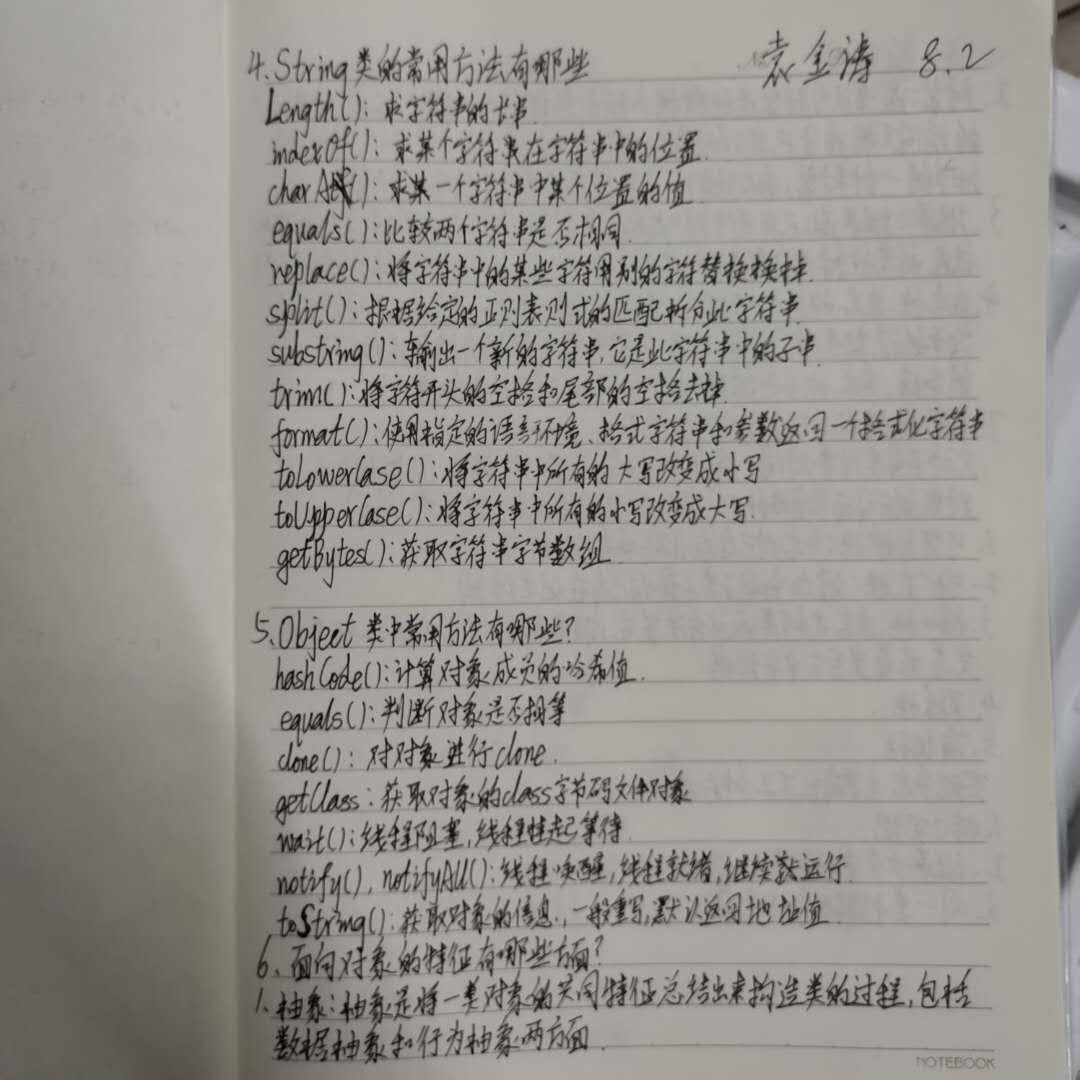 4、String类的常用方法有哪些 袁金涛 8.2
Length(): 求字符串的长串
indexOf(): 求某个字符串在字符串中的位置.
charAt(): 求某一个字符串中某个位置的值
equals(): 比较两个字符串是否相同.
replace(): 将字符串中的某些字符用别的字符替换换掉.
split(): 根据给定的正则表则式的匹配拆分此字符串.
substring(): 输出一个新的字符串,它是此字符串中的子串.
trim(): 将字符开头的空格和尾部的空格去掉.
format(): 使用指定的语言环境、格式字符串和参数返回一个格式化字符串
toLowerCase(): 将字符串中所有的大写改变成小写
toUpperCase(): 将字符串中所有的小写改变成大写.
getBytes(): 获取字符串字节数组
5、Object 类中常用方法有哪些?
hashCode(): 计算对象成员的哈希值.
equals(): 判断对象是否相等
clone(): 对对象进行clone.
getClass: 获取对象的class字节码文件对象
wait(): 线程阻塞,线程挂起等待.
notify(), notifyAll(): 线程唤醒,线程就绪,继续运行.
toString(): 获取对象的信息,一般重写,默认返回地址值.
6、面向对象的特征有哪些方面?
1、抽象:抽象是将一类对象的共同特征总结出来构造类的过程,包括
数据抽象和行为抽象两方面.
NOTEBOOK